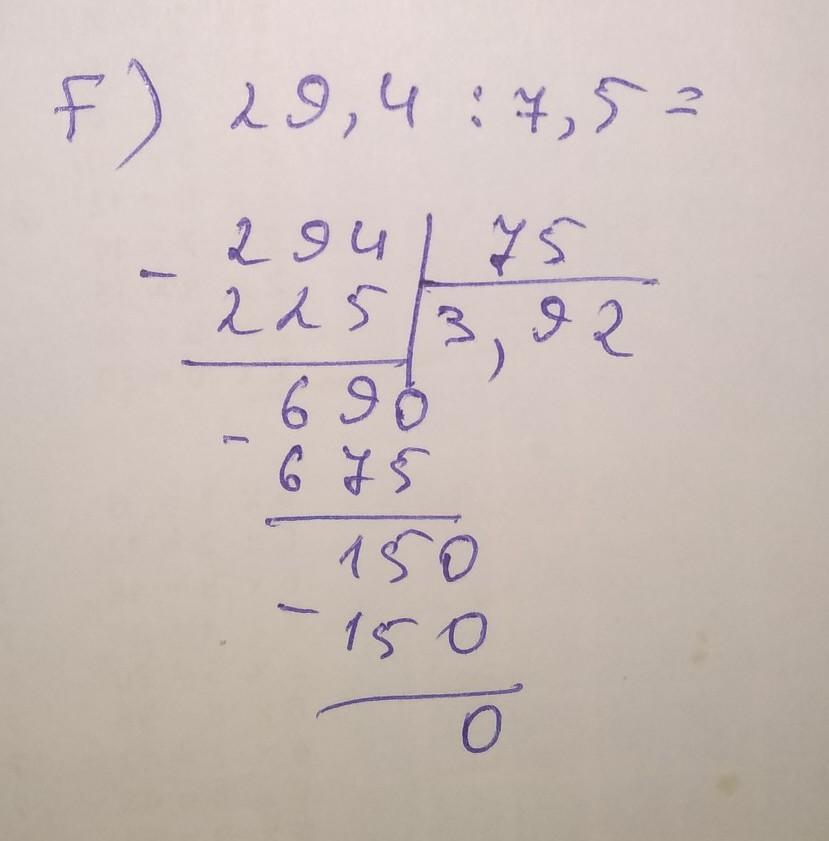 F) 29,4 : 7,5 =
- 294 | 75
225 | 3,92
690
- 675
150
- 150
0